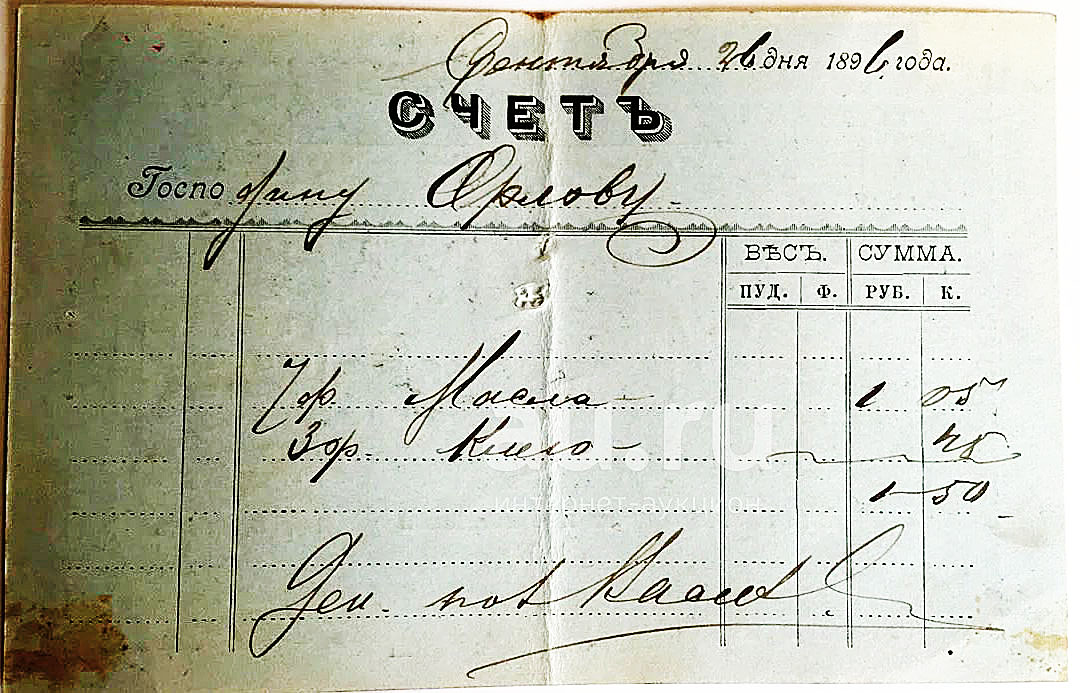 Сентября 26 дня 1896 года.
СЧЕТЪ
Господину Орлову
ВѢСЪ. СУММА.
ПУД. Ф. РУБ. К.
7 ф. Масла - 1 05
3 ф. Клею - 45
1-50
Ден.
au.ru
интернет-аукцион